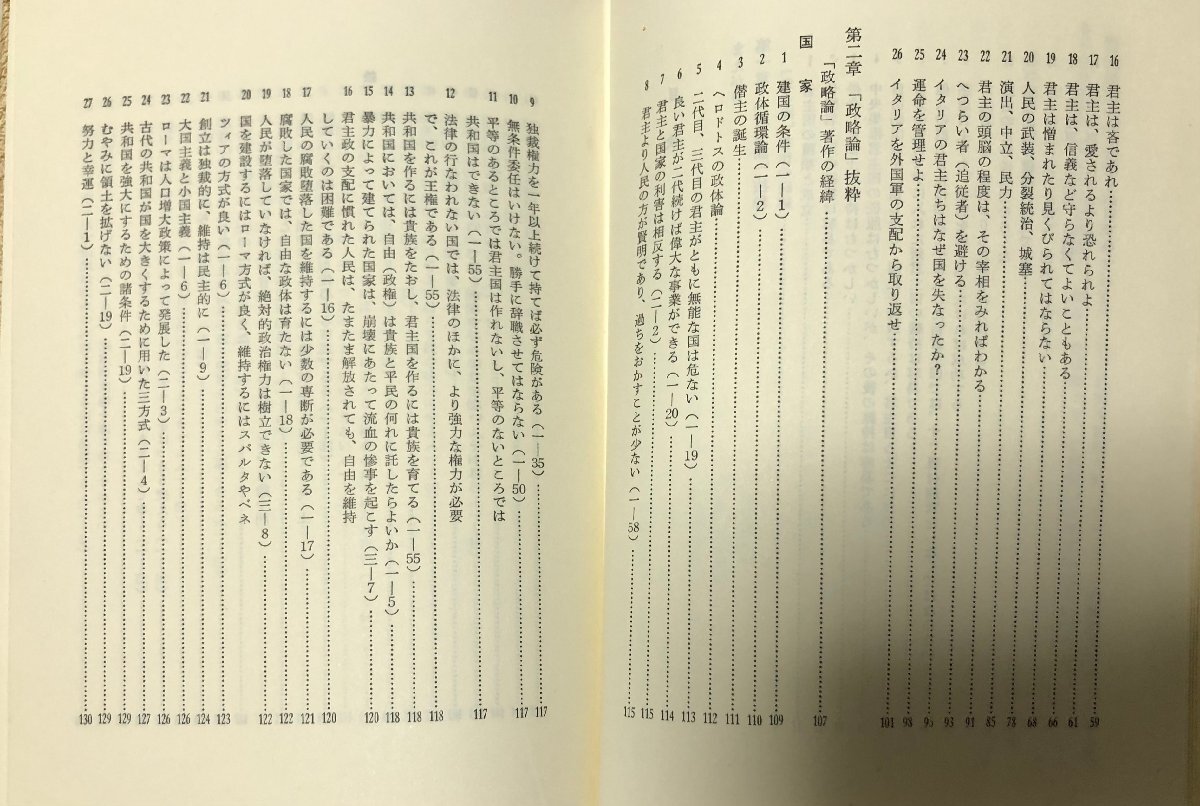 16 君主は吝であれ……59
17 君主は、愛されるより恐れられよ……61
18 君主は、信義など守らなくてよいこともある……66
19 君主は憎まれたり見くびられてはならない……68
20 人民の武装、分裂統治、城塞……78
21 演出、中立、民力……85
22 君主の頭脳の程度は、その宰相をみればわかる……91
23 へつらい者（追従者）を避ける……93
24 イタリアの君主たちはなぜ国を失なったか？……95
25 運命を管理せよ……98
26 イタリアを外国軍の支配から取り返せ……101
第二章 「政略論」抜粋
「政略論」著作の経緯……107
国家
1 建国の条件（一―1）……109
2 政体循環論（一―2）……110
3 僭主の誕生……111
4 ヘロドトスの政体論……112
5 二代目、三代目の君主がともに無能な国は危ない（一―19）……113
6 良い君主が二代続けば偉大な事業ができる（一―20）……114
7 君主と国家の利害は相反する（二―2）……115
8 君主より人民の方が賢明であり、過ちをおかすことが少ない（一―58）……115
9 独裁権力を一年以上続けて持てば必ず危険がある（一―35）……117
10 無条件委任はいけない。勝手に辞職させてはならない（一―50）……117
11 平等のあるところでは君主国は作れないし、平等のないところでは
共和国はできない（一―55）……117
12 法律の行なわれない国では、法律のほかに、より強力な権力が必要
で、これが王権である（一―55）……118
13 共和国を作るには貴族をたおし、君主国を作るには貴族を育てる（一―55）……118
14 共和国においては、自由（政権）は貴族と平民の何れに託したらよいか（一―5）……118
15 暴力によって建てられた国家は、崩壊にあたって流血の惨事を起こす（三―7）……120
16 君主政の支配に慣れた人民は、たまたま解放されても、自由を維持
していくのは困難である（一―16）……120
17 人民の腐敗堕落した国を維持するには少数の専断が必要である（一―17）……121
18 腐敗した国家では、自由な政体は育たない（一―18）……122
19 人民が堕落していなければ、絶対的政治権力は樹立できない（三―8）……122
20 国を建設するにはローマ方式が良く、維持するにはスパルタやベネ
ツィアの方式が良い（一―6）……123
21 創立は独裁的に、維持は民主的に（一―9）……124
22 大国主義と小国主義（一―6）……126
23 ローマは人口増大政策によって発展した（二―3）……126
24 古代の共和国が国を大きくするために用いた三方式（二―4）……127
25 共和国を強大にするための諸条件（二―19）……129
26 むやみに領土を拡げない（二―19）……129
27 努力と幸運（二―1）……130